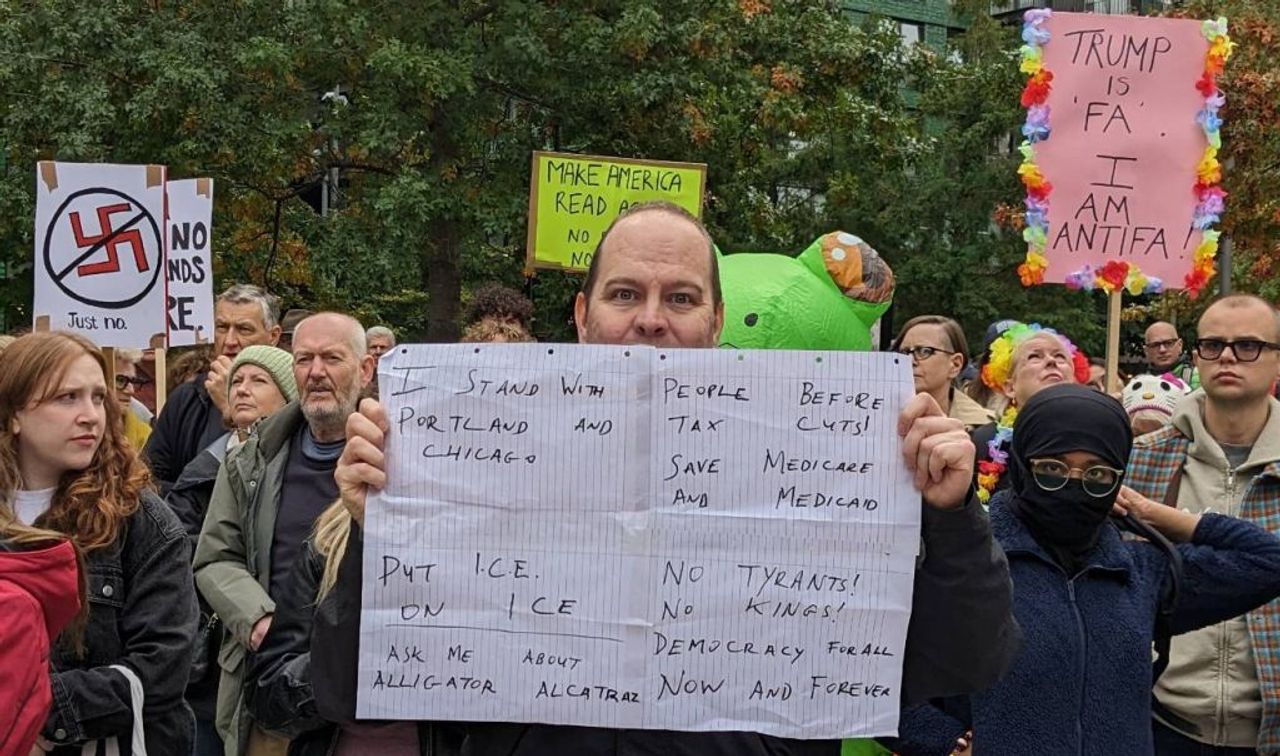 Just no.
NO
NDS
RE.
MAKE AMERICA
READ
NO
NO
TRUMP
IS
'FA'.
I
AM
ANTIFA!
I STAND WITH
PORTLAND AND
CHICAGO
PUT I.C.E.
ON ICE
ASK ME ABOUT
ALLIGATOR ALCATRAZ
PEOPLE BEFORE
TAX CUTS!
SAVE MEDICARE
AND MEDICAID
NO TYRANTS!
NO KINGS!
DEMOCRACY FOR ALL
NOW AND FOREVER